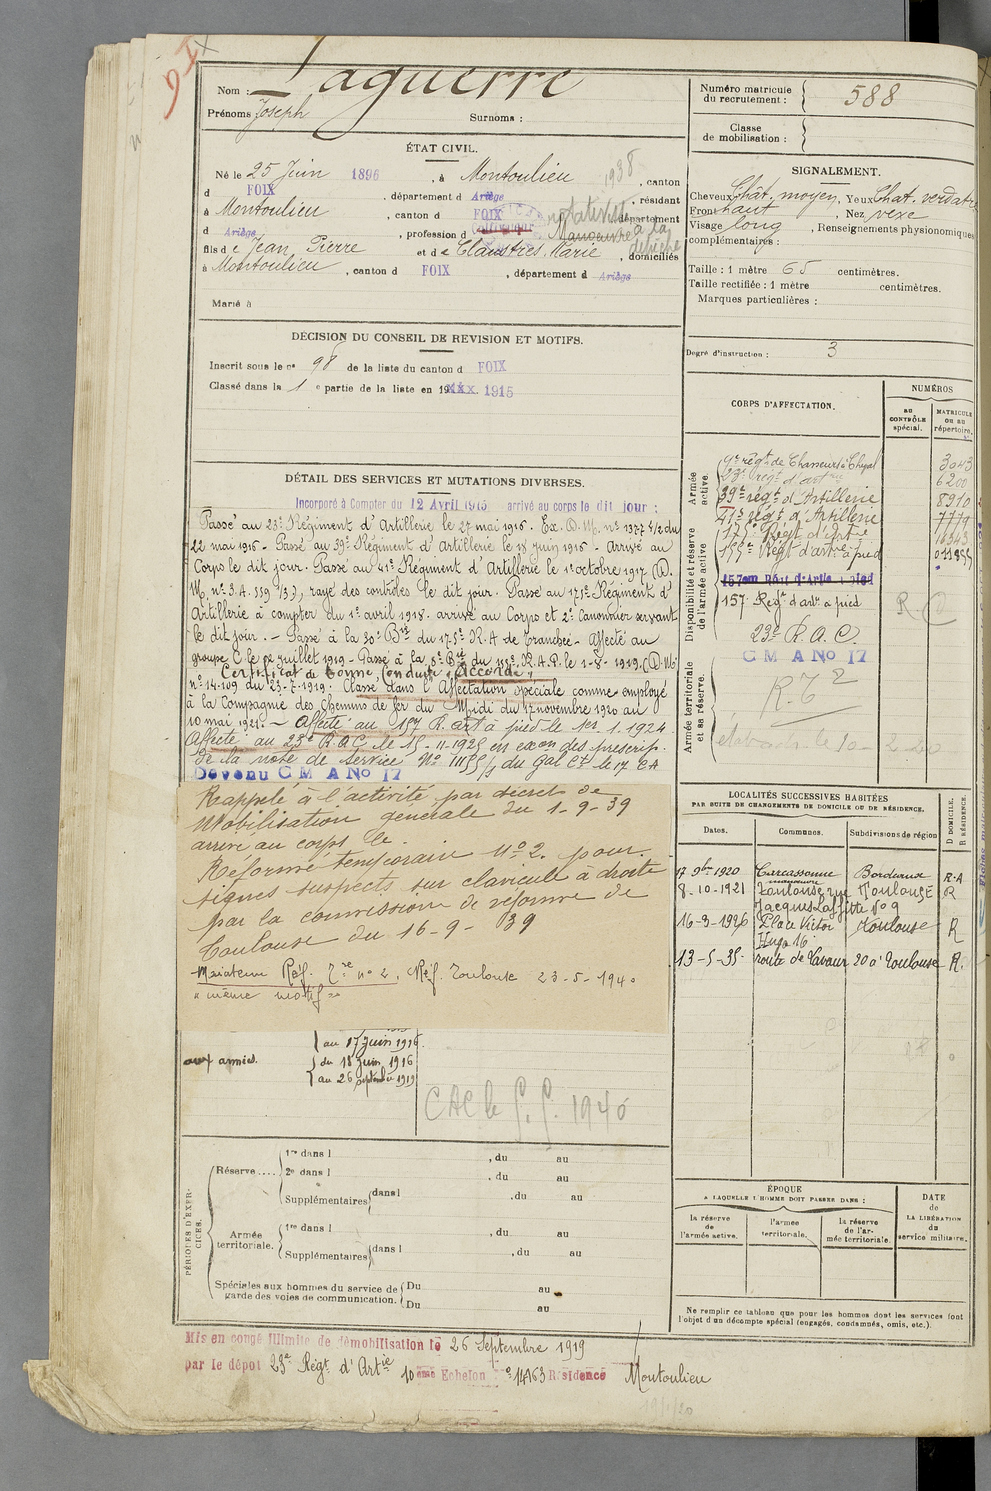 Nom : Laguerre
Prénoms Joseph Surnoms :
ÉTAT CIVIL.
Né le 25 Juin 1896, à Montoulieu, canton
d FOIX, département d Ariège, résidant
à Montoulieu, canton d FOIX, département
d Ariège, profession d Cultivateur Manoeuvre rotativiste à la dépêche 1938
fils de Jean Pierre et de Claustres Marie, domiciliés
à Montoulieu, canton d FOIX, département d Ariège
Marié à
DÉCISION DU CONSEIL DE REVISION ET MOTIFS.
Inscrit sous le nº 98 de la liste du canton d FOIX
Classé dans la 1e partie de la liste en 19 1915
DÉTAIL DES SERVICES ET MUTATIONS DIVERSES.
Incorporé à Compter du 12 Avril 1915 arrivé au corps le dit jour :
Passé au 23e Régiment d'Artillerie le 27 mai 1916. Ex. D.M. nº 1377 4/2 du
22 mai 1916 - Passé au 39e Régiment d'Artillerie le 18 juin 1916 - Arrivé au
Corps le dit jour. Passé au 41e Régiment d'Artillerie le 1er octobre 1917 (D.
M. nº 3.A. 559 1/3), rayé des contrôles le dit jour. Passé au 175e Régiment d'
Artillerie à compter du 1er avril 1918. arrivé au Corps et 2e Canonnier servant
le dit jour. - Passé à la 30e Bie du 175e R.A de Tranchée - Affecté au
groupe C. le 12 juillet 1919 - Passé à la 8e Bie du 155e R.A.P. le 1-8-1919. (D.M.
Certificat de bonne conduite "Accordé"
nº 14.109 du 23-7-1919. Classé dans l'Affectation Spéciale comme employé
à la Compagnie des Chemins de fer du Midi du 17 novembre 1920 au
10 mai 1921. - Affecté au 157 R. art à pied le 1er. 1. 1924
Affecté au 23e R.A.C. le 15-11-1925 en exon des prescrip.
de la note de service Nº 11155/1 du Gal Ct. le 17 CA
Devenu C M A No 17
Rappelé à l'activité par décret de
Mobilisation générale du 1-9-39
arrivé au corps le
Réformé temporaire Nº 2. pour.
signes suspects sur clavicule à droite
par la commission de réforme de
Toulouse du 16-9-39
Maintenu Réf. Tre nº 2. Réf. Toulouse 23-5-1940
"même motif"
au 17 Juin 1916.
aux armées. du 18 Juin 1916
au 26 septembre 1919
CAC le 1940
PÉRIODES D'EXERCICES.
Réserve.... 1re dans l , du au
2e dans l , du au
Supplémentaires dans l , du au
Armée territoriale. 1re dans l , du au
Supplémentaires dans l , du au
Spéciales aux hommes du service de garde des voies de communication. Du au
Du au
Mis en congé illimité de démobilisation le 26 Septembre 1919
par le dépôt 23e Régt. d'Artie 10ème Echelon nº 14163 Résidence Montoulieu
Numéro matricule du recrutement : 588
Classe de mobilisation :
SIGNALEMENT.
Cheveux Chât. moyen, Yeux Chat. verdatre
Front haut, Nez vexe
Visage long, Renseignements physionomiques
complémentaires :
Taille : 1 mètre 65 centimètres.
Taille rectifiée : 1 mètre centimètres.
Marques particulières :
Degré d'instruction : 3
CORPS D'AFFECTATION.
NUMÉROS
AU CONTRÔLE spécial.
MATRICULE OU AU répertoire.
Armée active.
9e régt de Chasseurs à Cheval 3043
23e régt d'artie 6200
39e régt d'Artillerie 8910
41e régt d'Artillerie 7779
175e Régt d'Artie
155e Régt d'artie à pied
Disponibilité et réserve de l'armée active.
157em Régt d'Artie à pied
157 Regt d'artie à pied
23e R.A.C.
C M A No 17
Armée territoriale et sa réserve.
R.T 2
LOCALITÉS SUCCESSIVES HABITÉES
PAR SUITE DE CHANGEMENTS DE DOMICILE OU DE RÉSIDENCE.
Dates. Communes. Subdivisions de région D DOMICILE. R RÉSIDENCE.
17 9bre 1920 Carcassonne Bordeaux R-A
8-10-1921 manoeuvre Toulouse rue Jacques Laffitte Nº 9 Toulouse R
16-3-1926 Place Victor Hugo 16 Toulouse R
13-5-35. route de Lavaur 20 a Toulouse R.
ÉPOQUE
A LAQUELLE L'HOMME DOIT PASSER DANS :
la réserve de l'armée active.
l'armée territoriale.
la réserve de l'armée territoriale.
DATE de LA LIBÉRATION du service militaire.
Ne remplir ce tableau que pour les hommes dont les services font
l'objet d'un décompte spécial (engagés, condamnés, omis, etc.).